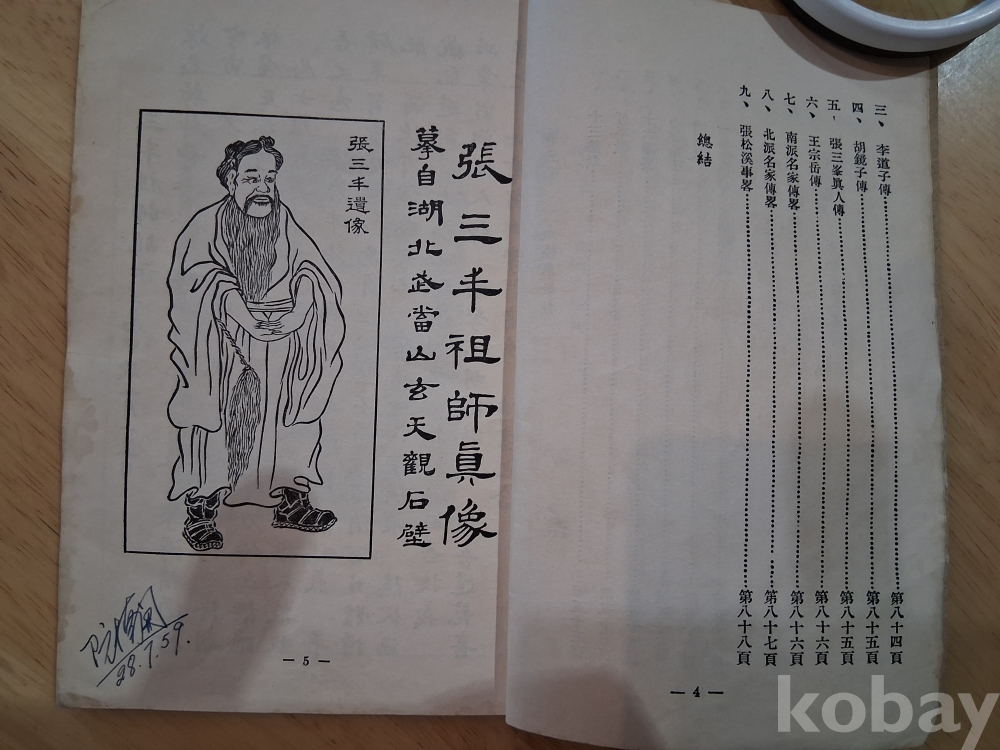 三、李道子傳……第八十四頁
四、胡鏡子傳……第八十五頁
五、張三峯眞人傳……第八十五頁
六、王宗岳傳……第八十六頁
七、南派名家傳畧……第八十六頁
八、北派名家傳畧……第八十七頁
九、張松溪事畧……第八十八頁
總結
— 4 —
張三丰祖師眞像
摹自湖北武當山玄天觀石壁
張三丰遺像
28.7.59.
— 5 —
kobay